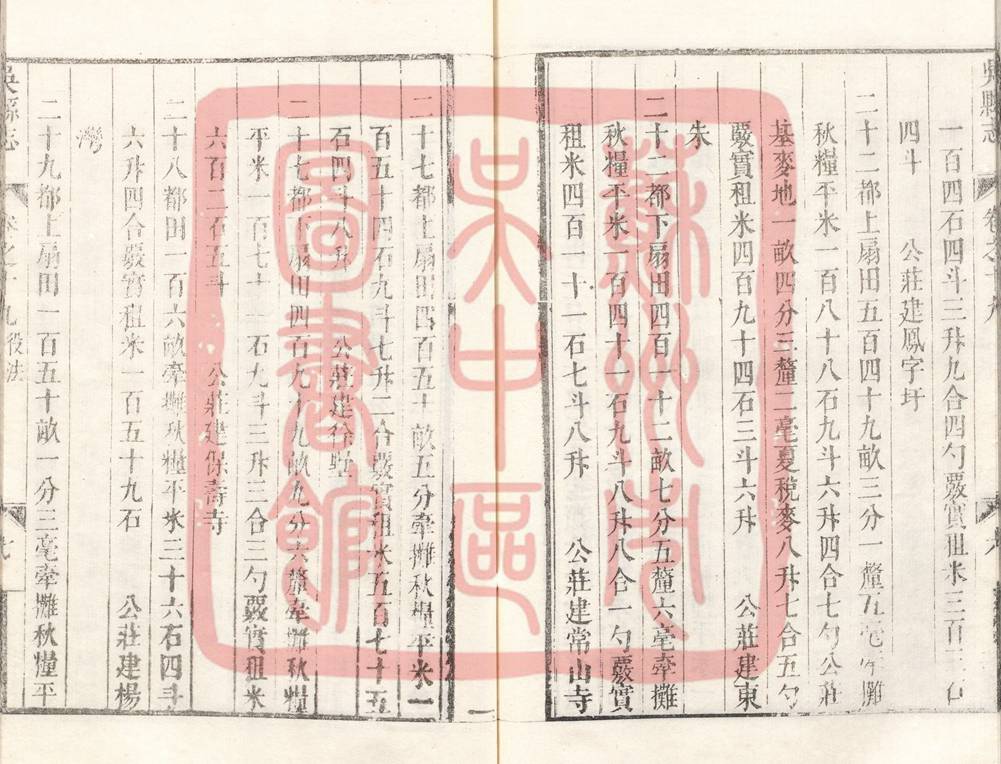 吳縣志
卷之十九
一百四石四斗三升九合四勺覈實租米三百二石
四斗　公莊建鳳字圩
二十二都上扇田五百四十九畝三分一釐五毫牽攤
秋糧平米一百八十八石九斗六升四合七勺公莊
基麥地一畝四分三釐二毫夏稅麥八升七合五勺
覈實租米四百九十四石三斗六升　公莊建東
朱
二十二都下扇田四百一十二畝七分五釐六毫牽攤
秋糧平米一百四十一石九斗八升八合一勺覈實
租米四百一十一石七斗八升　公莊建常山寺
二十七都上扇田四百五十畝五分牽攤秋糧平米一
百五十四石九斗七升二合覈實租米五百七十五
石四斗八升　公莊建徐
二十七都下扇田四百九十九畝九分六釐牽攤秋糧
平米一百七十石九斗三升三合三勺覈實租米
六百二石五斗　公莊建保壽寺
二十八都田一百六畝牽攤秋糧平米三十六石四斗
六升四合覈實租米一百五十九石　公莊建楊
灣
二十九都上扇田一百五十畝一分三毫牽攤秋糧平
吳縣志
卷之十九役法
蘇州市
吳中區
圖書館